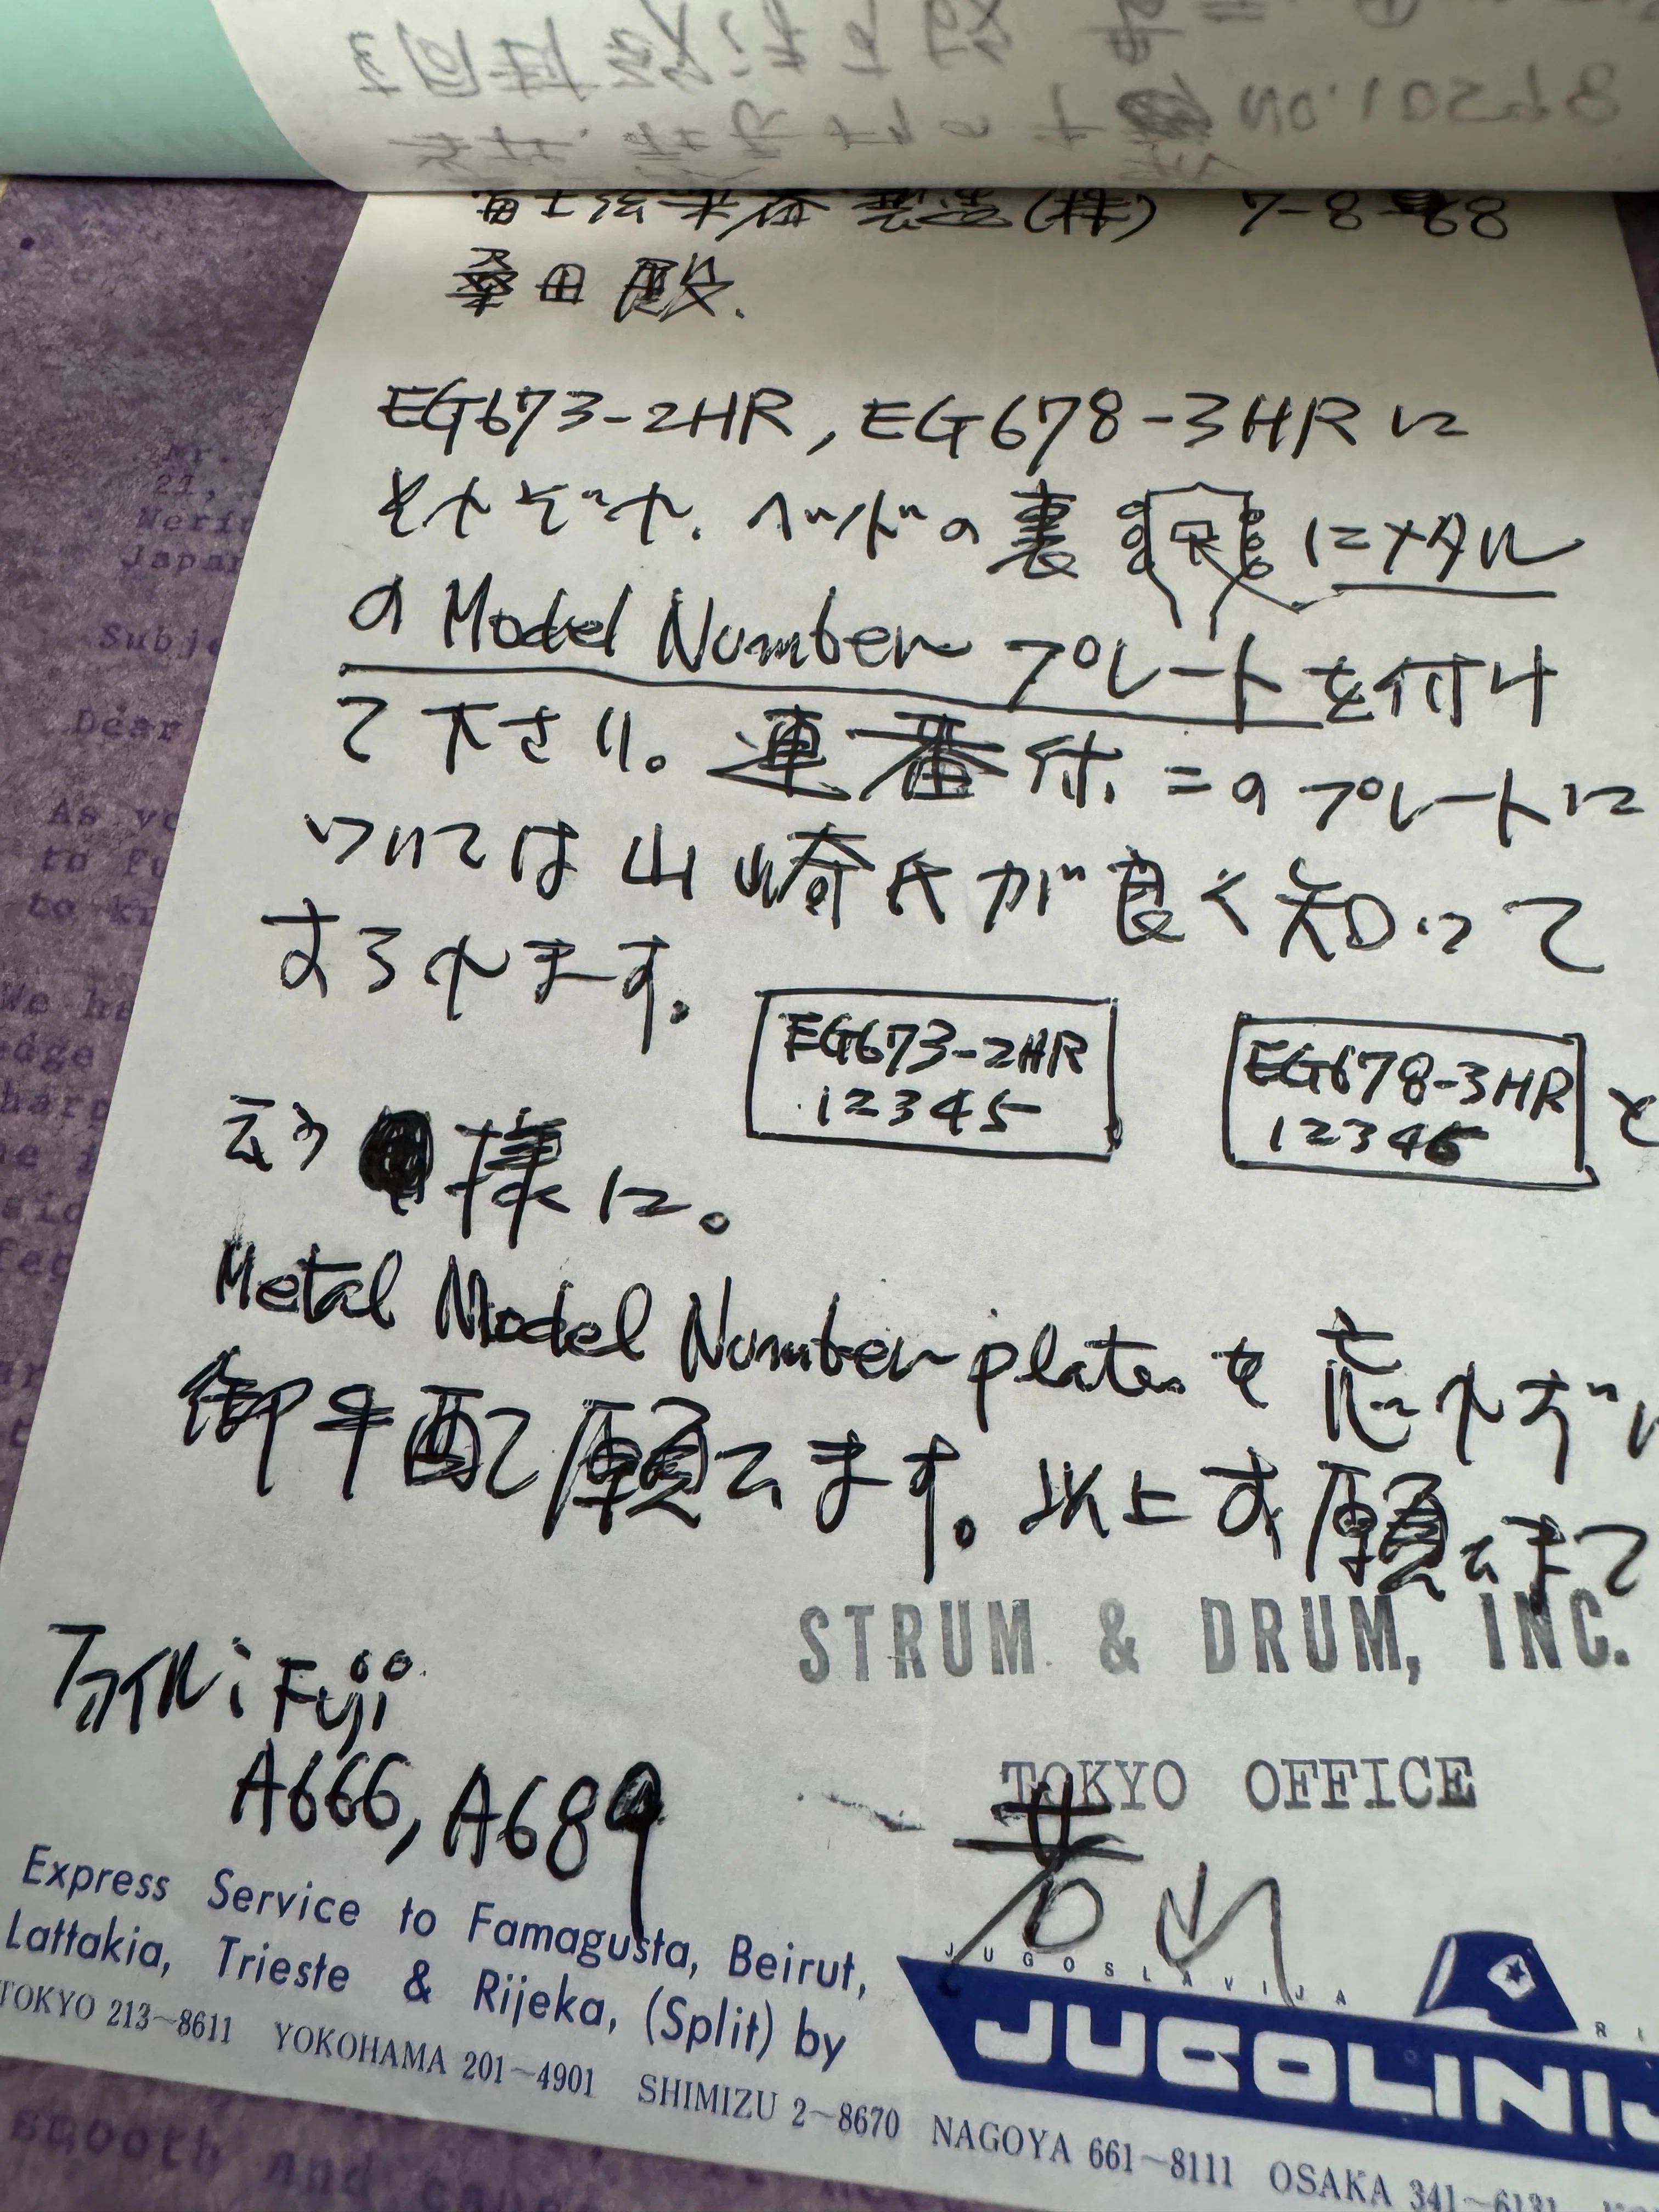 富士弦楽器製造(株) 7-8-68
桑田殿.
EG673-2HR, EG678-3HRに
それぞれ、ヘッドの裏にメタル
のModel Numberプレートを付け
て下さい。連番付、このプレートに
ついては山崎氏が良く知って
おられます。
EG673-2HR
12345
EG678-3HR
12346
と
云う様に。
Metal Model Number plateを忘れずに
御手配願います。以上お願いまで
STRUM & DRUM, INC.
TOKYO OFFICE
ファイル: Fuji
A666, A689
Express Service to Famagusta, Beirut,
Lattakia, Trieste & Rijeka, (Split) by
JUGOSLAVIJA
JUGOLINIJ
TOKYO 213~8611 YOKOHAMA 201~4901 SHIMIZU 2~8670 NAGOYA 661~8111 OSAKA 341~6131
Mr.
21,
Japan
Subje
Dear
As yo
to Fu
to kn
We ha
edge
smooth and